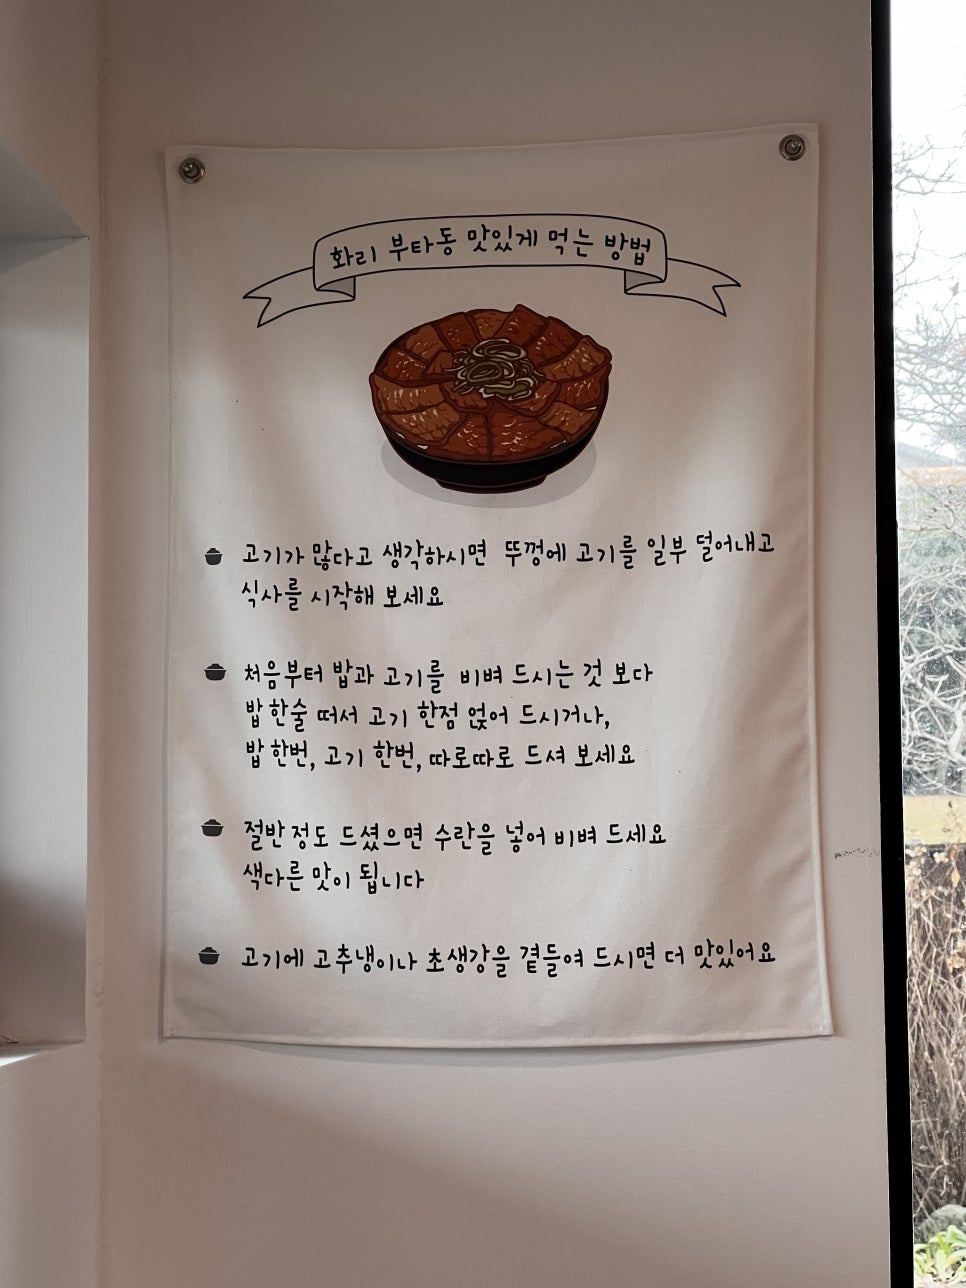 화리 부타동 맛있게 먹는 방법
고기가 많다고 생각하시면 뚜껑에 고기를 일부 덜어내고
식사를 시작해 보세요
처음부터 밥과 고기를 비벼 드시는 것 보다
밥 한술 떠서 고기 한점 얹어 드시거나,
밥 한번, 고기 한번, 따로따로 드셔 보세요
절반 정도 드셨으면 수란을 넣어 비벼 드세요
색다른 맛이 됩니다
고기에 고추냉이나 초생강을 곁들여 드시면 더 맛있어요